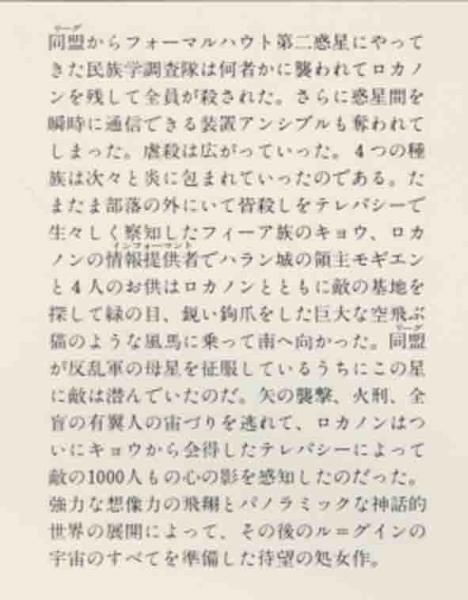 リーグ
同盟からフォーマルハウト第二惑星にやって
きた民族学調査隊は何者かに襲われてロカノ
ンを残して全員が殺された。さらに惑星間を
瞬時に通信できる装置アンシブルも奪われて
しまった。虐殺は広がっていった。4つの種
族は次々と炎に包まれていったのである。た
またま部落の外にいて皆殺しをテレパシーで
生々しく察知したフィーア族のキョウ、ロカ
インフォーマント
ノンの情報提供者でハラン城の領主モギエン
と4人のお供はロカノンとともに敵の基地を
探して緑の目、鋭い鉤爪をした巨大な空飛ぶ
猫のような風馬に乗って南へ向かった。同盟
リーグ
が反乱軍の母星を征服しているうちにこの星
に敵は潜んでいたのだ。矢の襲撃、火刑、全
盲の有翼人の宙づりを逃れて、ロカノンはつ
いにキョウから会得したテレパシーによって
敵の1000人もの心の影を感知したのだった。
強力な想像力の飛翔とパノラミックな神話的
世界の展開によって、その後のル＝グインの
宇宙のすべてを準備した待望の処女作。